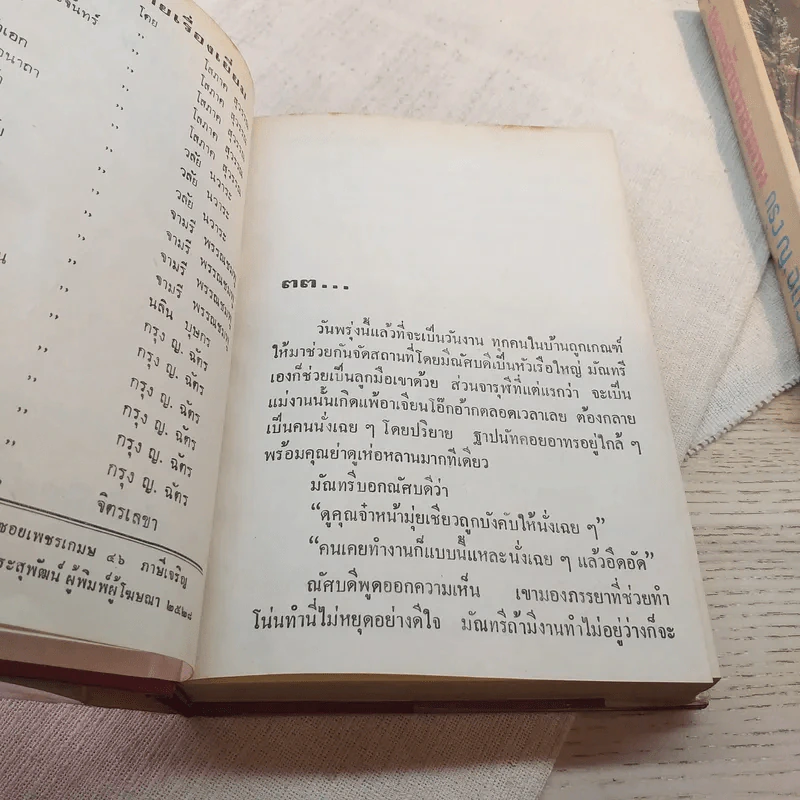 ยเรื่องเยี่ยม
จันทร์ โดย โสภาค สุวรรณ
เอก ,, โสภาค สุวรรณ
,, โสภาค สุวรรณ
,, โสภาค สุวรรณ
,, วลัย นวาระ
,, วลัย นวาระ
,, จามรี พรรณชมพู
,, จามรี พรรณชมพู
,, จามรี พรรณชมพู
,, นลิน บุษกร
,, กรุง ญ. ฉัตร
,, กรุง ญ. ฉัตร
,, กรุง ญ. ฉัตร
,, กรุง ญ. ฉัตร
,, กรุง ญ. ฉัตร
จิตรเลขา
ซอยเพชรเกษม ๔๖ ภาษีเจริญ
ระสุพัฒน์ ผู้พิมพ์ผู้โฆษณา ๒๕๒๘
๓๓...
วันพรุ่งนี้แล้วที่จะเป็นวันงาน ทุกคนในบ้านถูกเกณฑ์
ให้มาช่วยกันจัดสถานที่โดยมีณัศบดีเป็นหัวเรือใหญ่ มัณทรี
เองก็ช่วยเป็นลูกมือเขาด้วย ส่วนจารุพีที่แต่แรกว่า จะเป็น
แม่งานนั้นเกิดแพ้อาเจียนโอ๊กอ้ากตลอดเวลาเลย ต้องกลาย
เป็นคนนั่งเฉย ๆ โดยปริยาย ฐาปนัทคอยอาทรอยู่ใกล้ ๆ
พร้อมคุณย่าดูเห่อหลานมากทีเดียว
มัณทรีบอกณัศบดีว่า
“ดูคุณจ๋าหน้ามุ่ยเชียวถูกบังคับให้นั่งเฉย ๆ”
“คนเคยทำงานก็แบบนี้แหละนั่งเฉย ๆ แล้วอึดอัด”
ณัศบดีพูดออกความเห็น เขามองภรรยาที่ช่วยทำ
โน่นทำนี่ไม่หยุดอย่างดีใจ มัณทรีถ้ามีงานทำไม่อยู่ว่างก็จะ